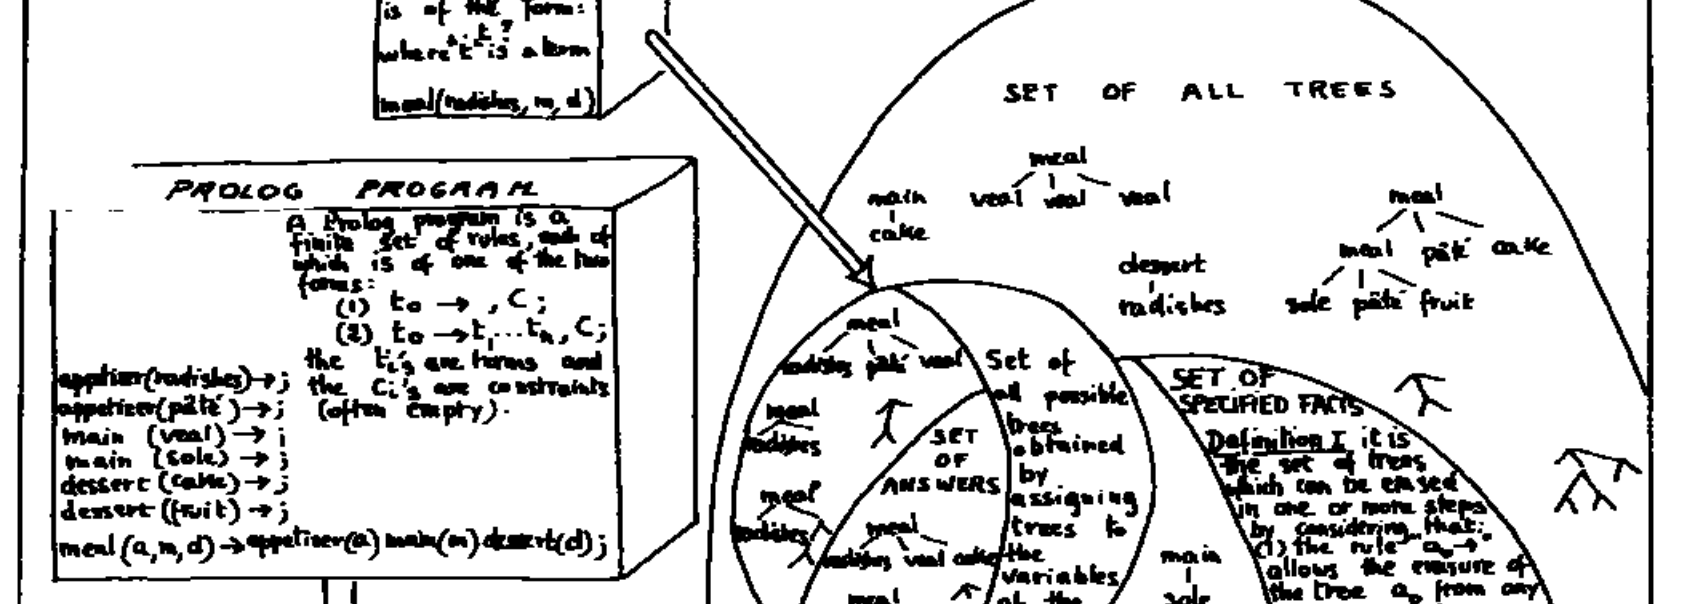 is of the form:
"t"?
where "t" is a term
meal(radishes, m, d)
PROLOG PROGRAM
A Prolog program is a
finite set of rules, each of
which is of one of the two
forms:
(1) to → , C;
(2) to → t1...tn, C;
the ti's are terms and
the Ci's are constraints
(often empty).
appetizer(radishes) → ;
appetizer(pâté) → ;
main (veal) → ;
main (sole) → ;
dessert (cake) → ;
dessert (fruit) → ;
meal(a,m,d) → appetizer(a) main(m) dessert(d);
SET OF ALL TREES
meal
veal veal veal
main
cake
meal
meal pâté cake
sole pâté fruit
dessert
radishes
meal
radishes pâté veal
meal
radishes
meal
radishes
Set of
all possible
trees
obtained
by
assigning
trees to
the
variables
of the
SET
OF
ANSWERS
meal
radishes veal cake
meal
main
sole
SET OF
SPECIFIED FACTS
Definition I it is
the set of trees
which can be erased
in one or more steps
by considering that:
(1) the rule ao →
allows the erasure of
the tree ao from any